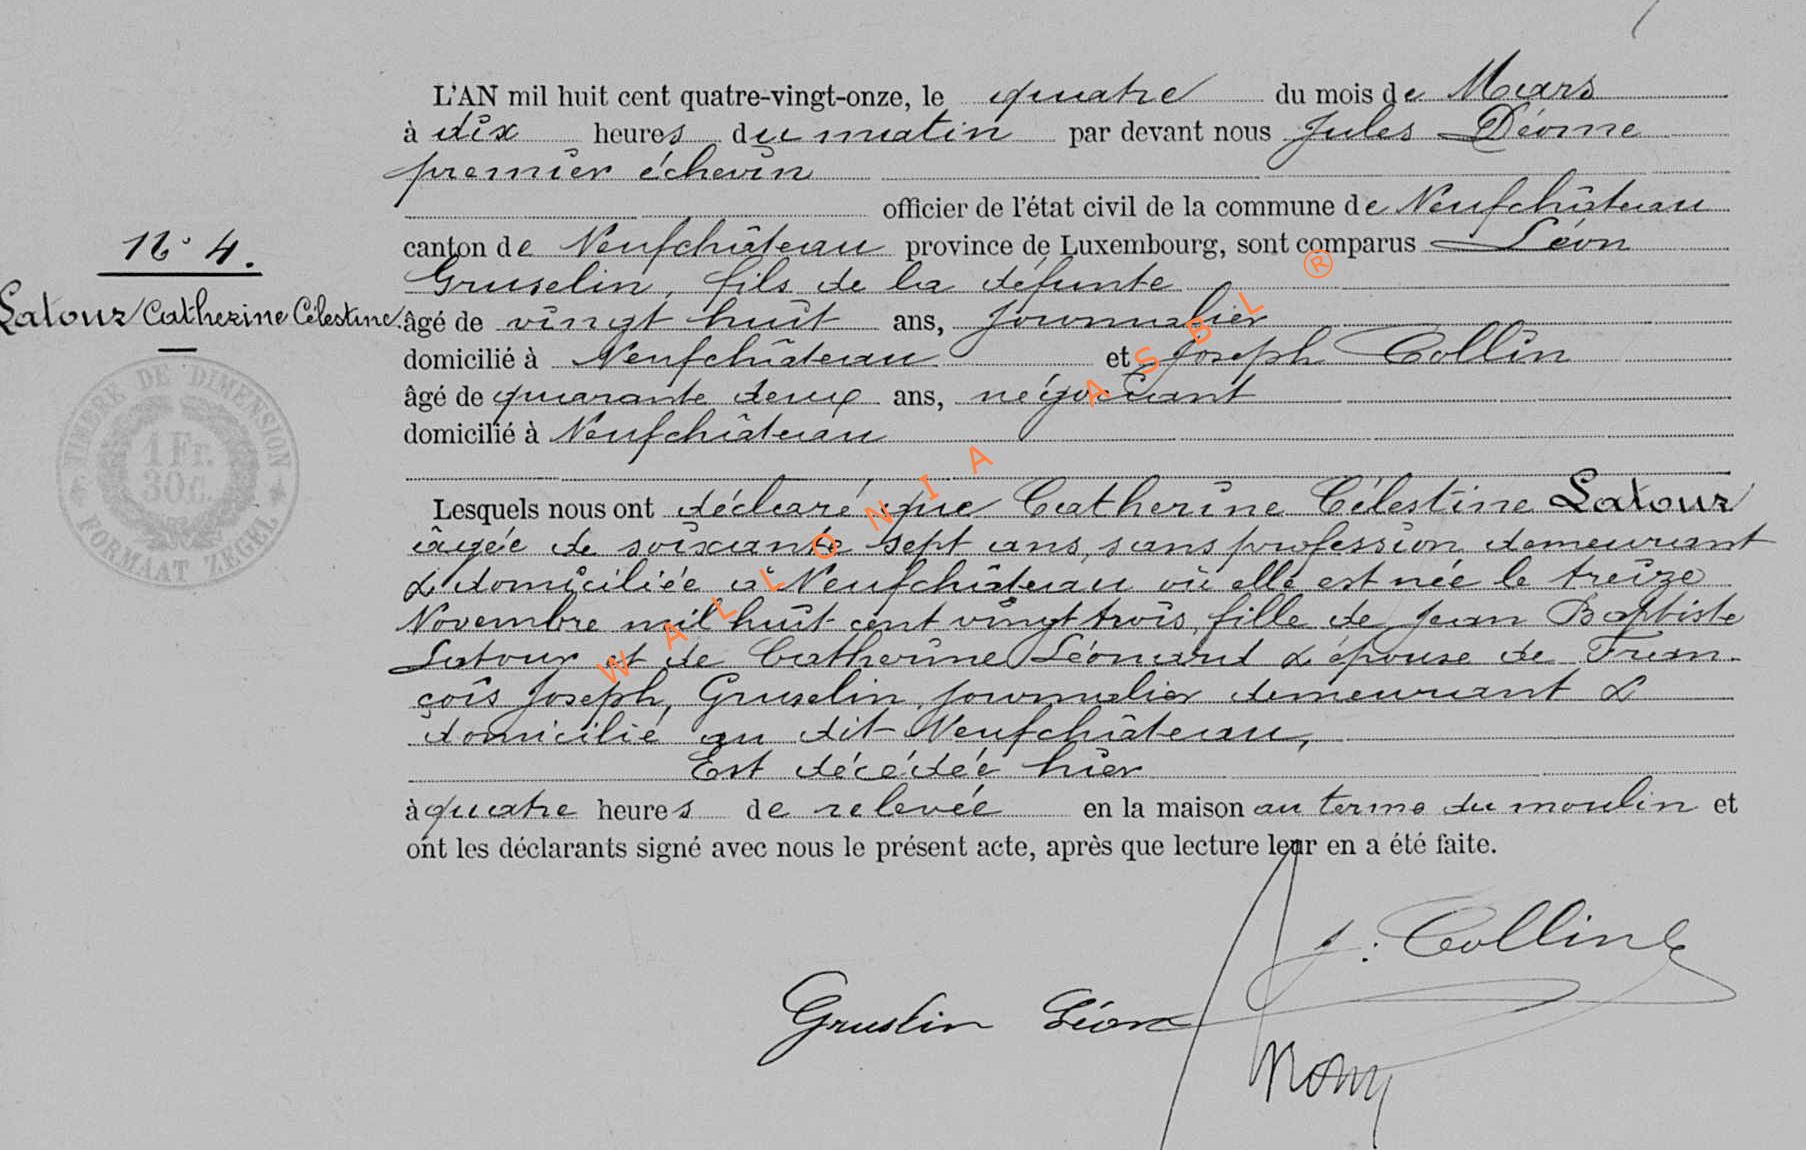 L'AN mil huit cent quatre-vingt-onze, le quatre du mois de Mars
à dix heures du matin par devant nous Jules Déome
premier échevin
officier de l'état civil de la commune de Neufchâteau
N° 4.
canton de Neufchâteau province de Luxembourg, sont comparus Léon
Gruselin, fils de la défunte
Latour Catherine Célestine
âgé de vingt huit ans, journalier
domicilié à Neufchâteau et Joseph Collin
âgé de quarante deux ans, négociant
domicilié à Neufchâteau
TIMBRE DE DIMENSION
1 Fr.
30 c.
FORMAAT ZEGEL
Lesquels nous ont déclaré que Catherine Célestine Latour
âgée de soixante sept ans, sans profession demeurant
& domiciliée à Neufchâteau où elle est née le treize
Novembre mil huit cent vingt trois, fille de Jean Baptiste
Latour et de Catherine Léonard & épouse de Fran-
çois Joseph, Gruselin, journalier demeurant &
domicilié au dit Neufchâteau,
Est décédée hier
à quatre heures de relevée en la maison au terme du moulin et
ont les déclarants signé avec nous le présent acte, après que lecture leur en a été faite.
J. Collin
Gruslin Léon
WALLONIA ASBL ®